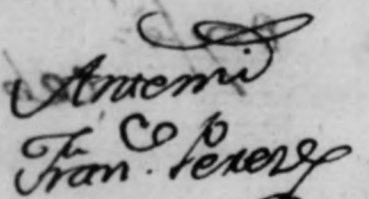 Antemi
Franco. Perez